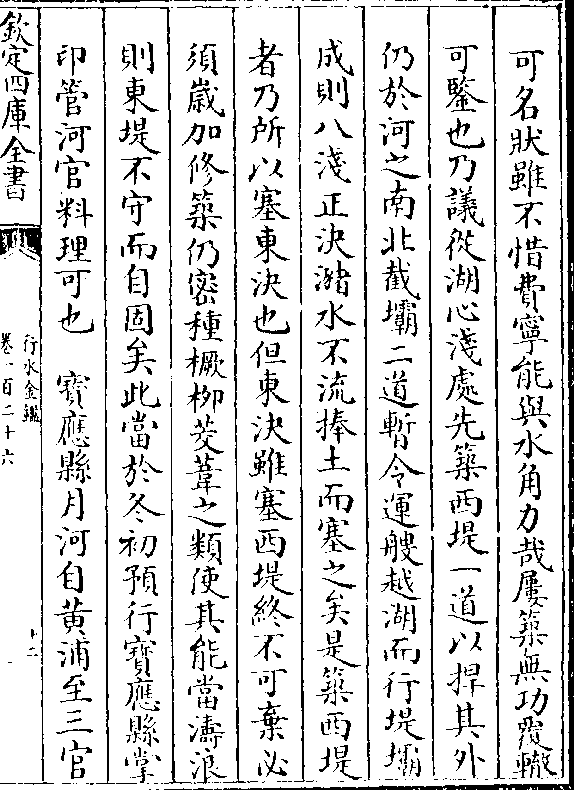 可名狀雖不惜費寧能與水角力哉屢築無功覆轍
可鑒也乃議從湖心淺處先築西堤一道以捍其外
仍於河之南北截壩二道暫令運艘越湖而行堤壩
成則八淺正決瀦水不流捧土而塞之矣是築西堤
者乃所以塞東決也但東決雖塞西堤終不可棄必
須嵗加修築仍密種橛柳茭葦之類使其能當濤浪
則東堤不守而自固矣此當於冬初預行寶應縣掌
印管河官料理可也　寶應縣月河自黃浦至三官
欽定四庫全書
行水金鑑
卷一百二十六
十二